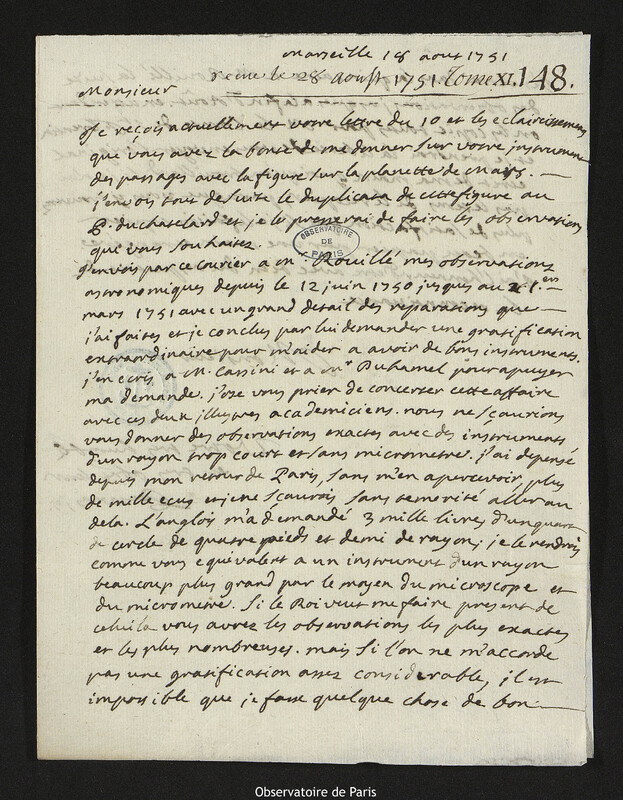 Marseille 18 aout 1751
recue le 28 aoust 1751. Tome XI. 148.
Monsieur
Je reçois actuellement votre lettre du 10 et les eclaircissemens
que vous avez la bonté de me donner sur votre instrument
des passages avec la figure sur la planette de mars.
j'envois tout de suite le duplicata de cette figure au
P. du chatelard et je le presserai de faire les observations
que vous souhaitez.
OBSERVATOIRE DE PARIS
j'envois par ce courier a m. Rouillé mes observations
astronomiques depuis le 12 juin 1750 jusques au 1er
mars 1751 avec un grand detail des reparations que
j'ai faites et je conclus par lui demander une gratification
extraordinaire pour m'aider a avoir de bons instruments.
j'en ecris a M. Cassini et a mr Duhamel pour apuyer
ma demande. j'ose vous prier de concerter cette affaire
avec ces deux illustres academiciens. nous ne sçaurions
vous donner des observations exactes avec des instruments
d'un rayon trop court et sans micrometre. j'ai depensé
depuis mon retour de Paris, sans m'en apercevoir, plus
de mille ecus et je ne sçaurois sans temerité aller au
dela. L'anglois m'a demandé 3 mille livres d'un quart
de cercle de quatre pieds et demi de rayon; je le rendrois
comme vous equivalent a un instrument d'un rayon
beaucoup plus grand par le moyen du microscope et
du micrometre. Si le Roi veut me faire present de
celui la vous aurez les observations les plus exactes
et les plus nombreuses. mais si l'on ne m'accorde
pas une gratification assez considerable, il est
impossible que je fasse quelque chose de bon
Observatoire de Paris